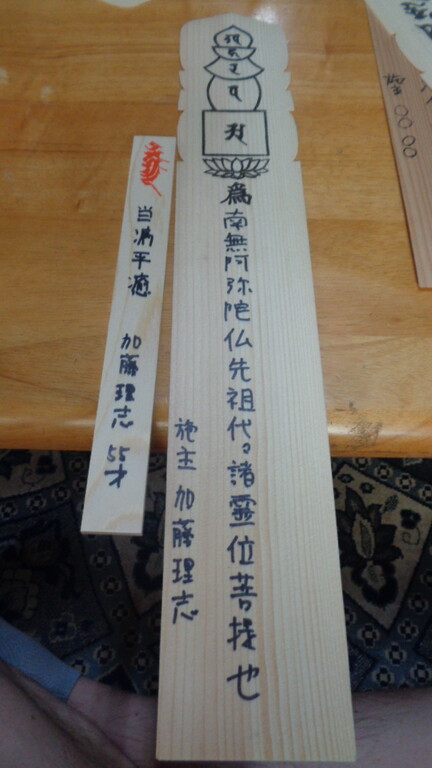 為南無阿弥陀仏先祖代々諸霊位菩提也
施主 加藤理志
加藤理志 55才
施主 〇〇〇〇